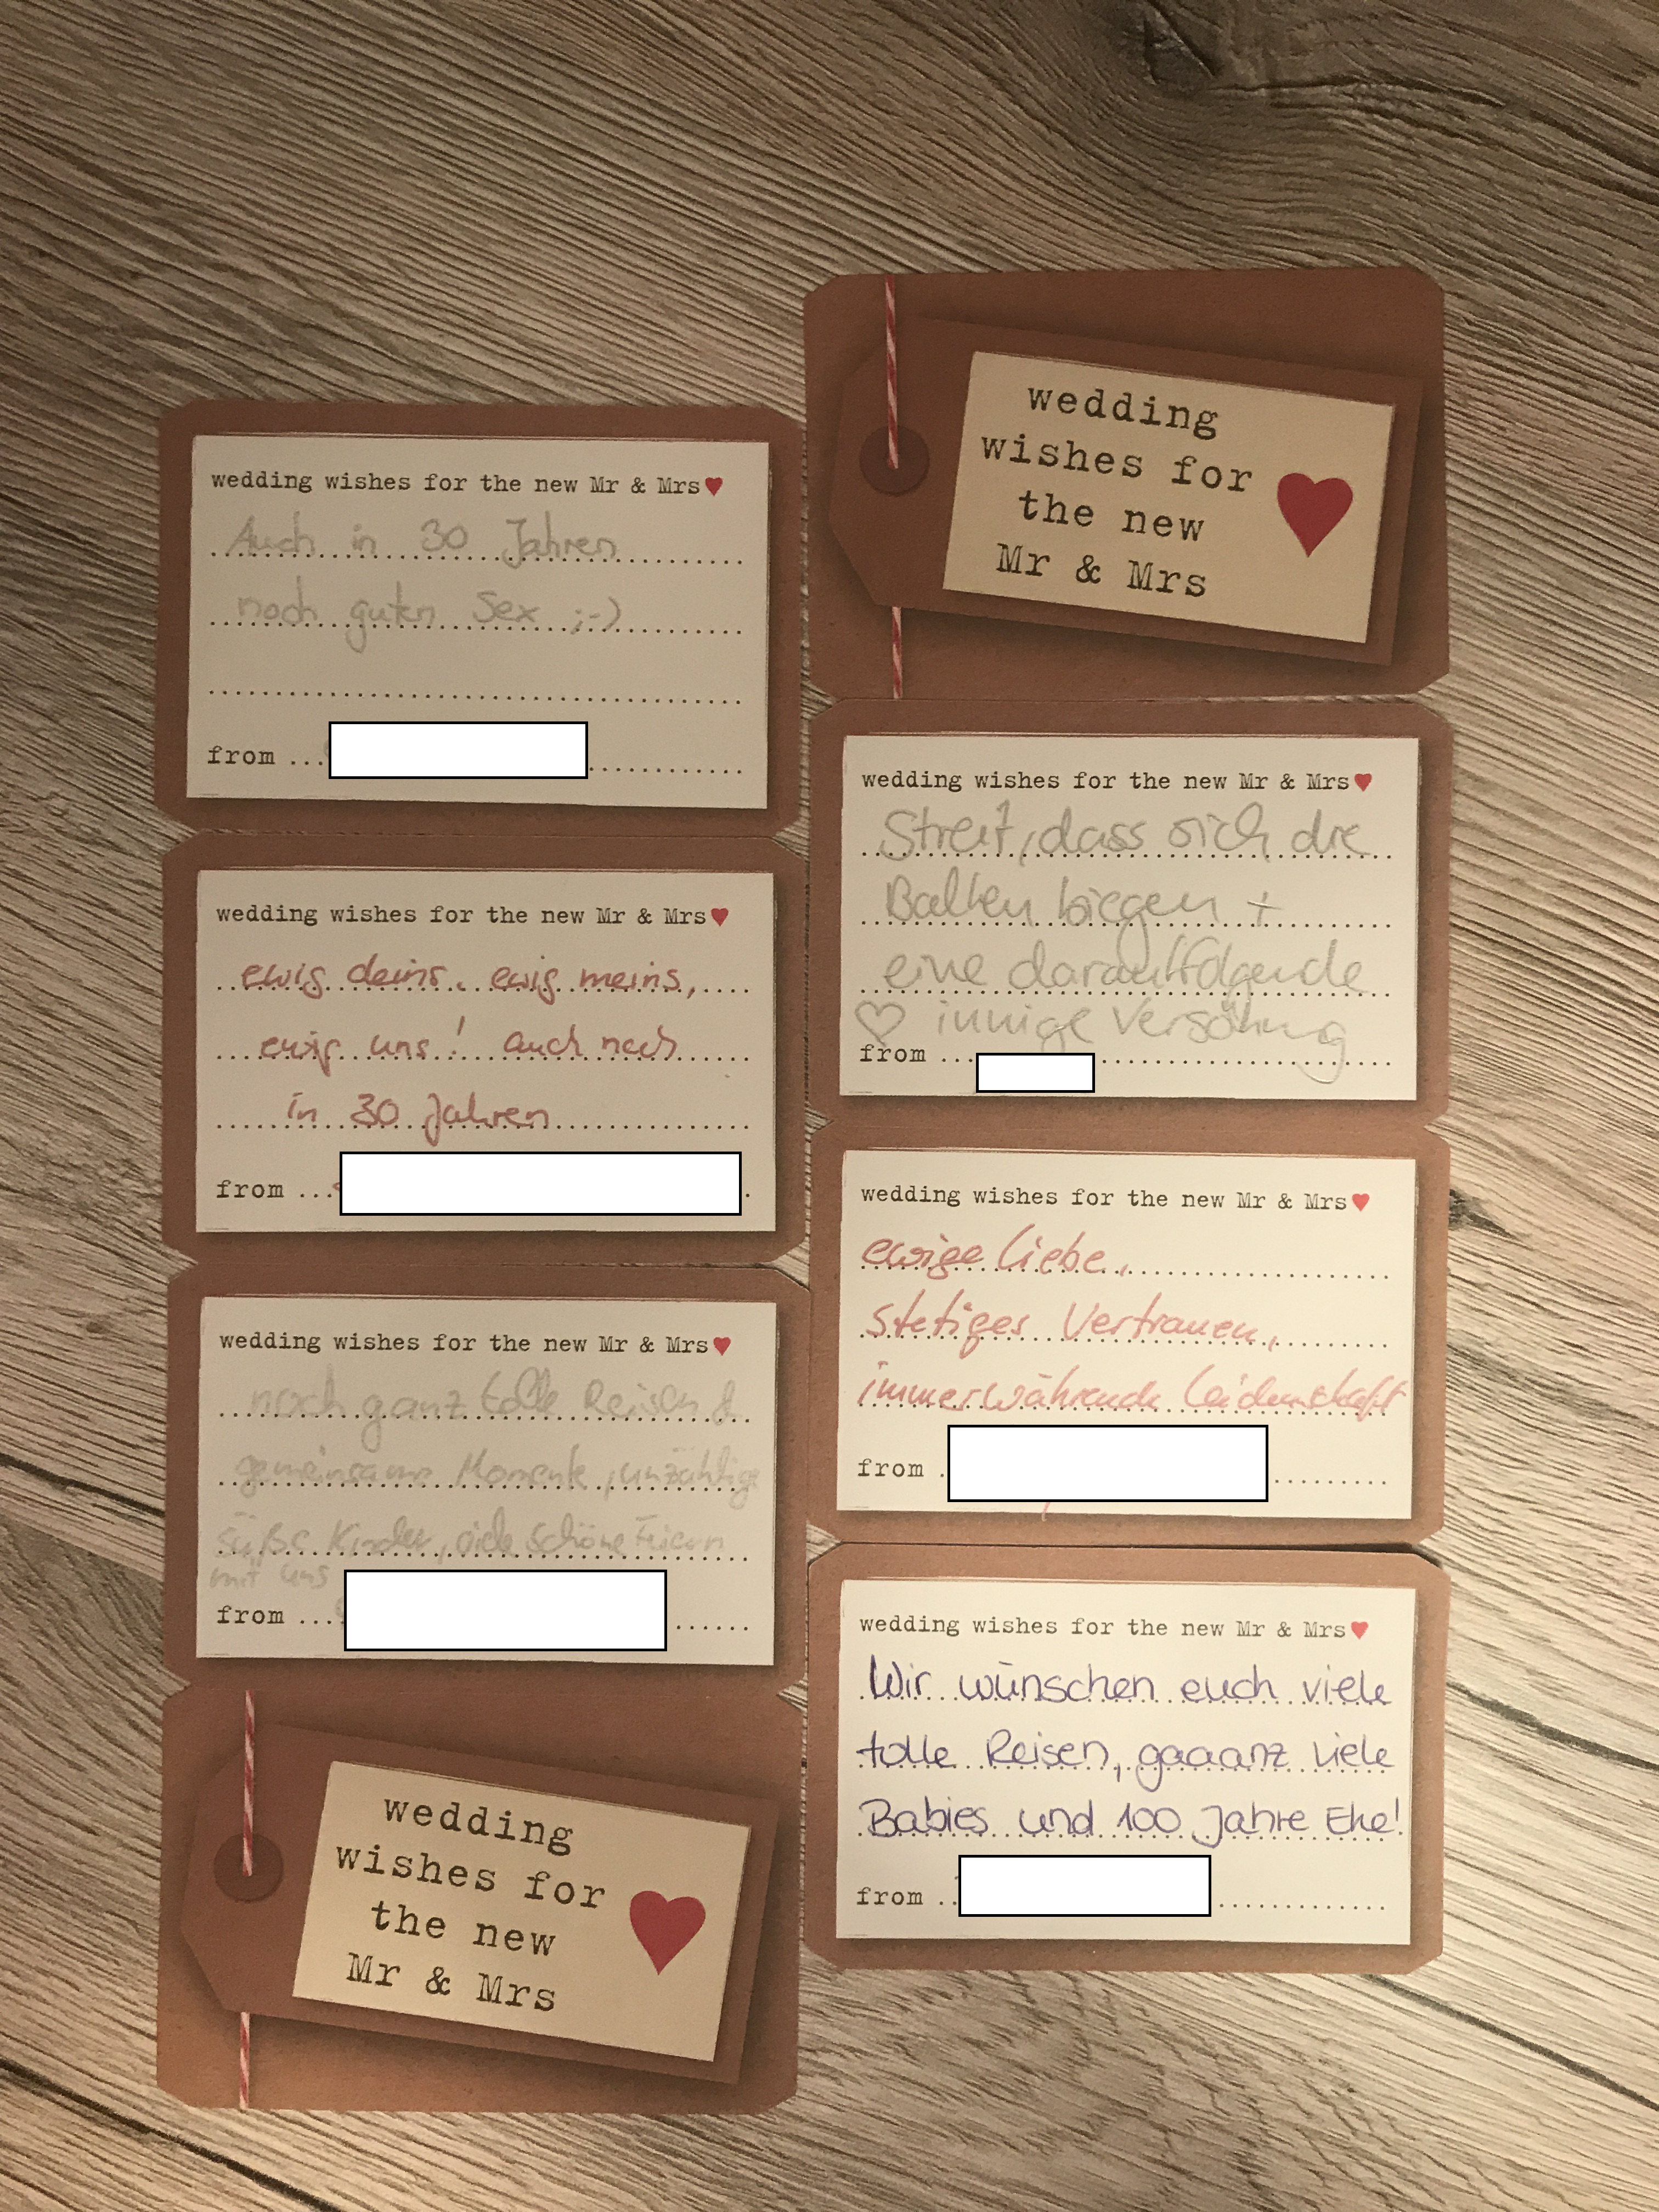 wedding wishes for the new Mr & Mrs
Auch in 30 Jahren
noch guten Sex ;-)
from
wedding wishes for the new Mr & Mrs
ewig deins, ewig meins,
ewig uns! auch noch
in 30 Jahren
from
wedding wishes for the new Mr & Mrs
noch ganz tolle Reisen &
gemeinsame Momente, unzählige
süße Kinder, viele schöne Feiern
mit uns
from
wedding
wishes for
the new
Mr & Mrs
wedding
wishes for
the new
Mr & Mrs
wedding wishes for the new Mr & Mrs
Streit, dass sich die
Balken biegen +
eine darauffolgende
innige Versöhnung
from
wedding wishes for the new Mr & Mrs
ewige Liebe,
stetiges Vertrauen,
immerwährende Leidenschaft
from
wedding wishes for the new Mr & Mrs
Wir wünschen euch viele
tolle Reisen, gaaanz viele
Babies und 100 Jahre Ehe!
from